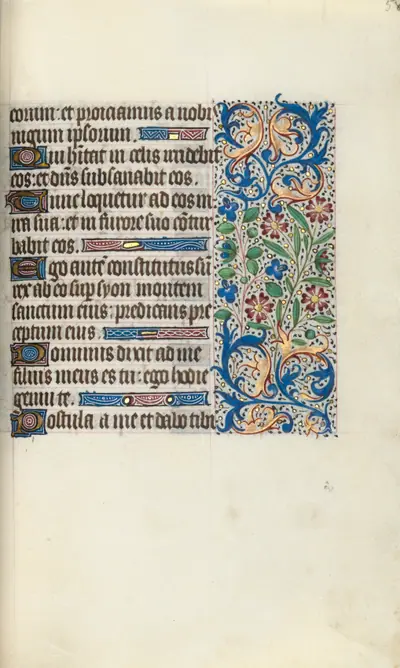 eorum: et proiciamus a nobis
iugum ipsorum.
Qui hitat in celis irridebit
eos: et dn̄s subsanabit eos.
Tunc loquetur ad eos in
ira sua: et in furore suo cōtur
babit eos.
Ego autē constitutus sū
rex ab eo sup syon montem
sanctum eius: predicans pre
ceptum eius.
Dominus dixit ad me
filius meus es tu: ego hodie
genui te.
Postula a me et dabo tibi